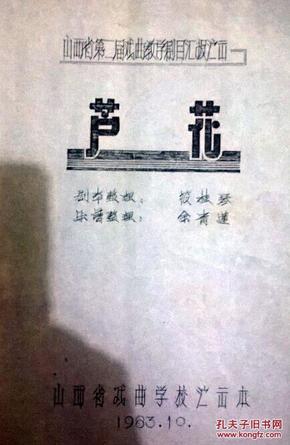 山西省第二届戏曲教学剧目汇报演出
芦花
剧本整理：筱桂琴
乐谱整理：余青莲
山西省戏曲学校演出本
1983.10.
孔夫子旧书网